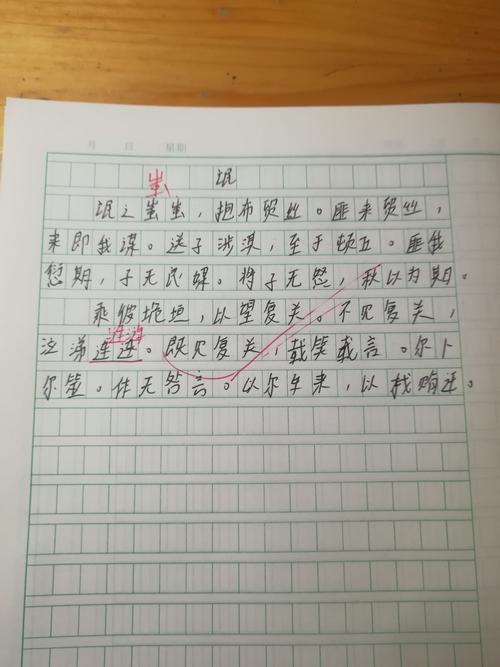 月 日 星期
蚩
氓
氓之蚩蚩,抱布贸丝。匪来贸丝,
来即我谋。送子涉淇,至于顿丘。匪我
愆期,子无良媒。将子无怒,秋以为期。
乘彼垝垣,以望复关。不见复关,
涟涟
泣涕连连。既见复关,载笑载言。尔卜
尔筮。体无咎言。以尔车来,以我贿迁。